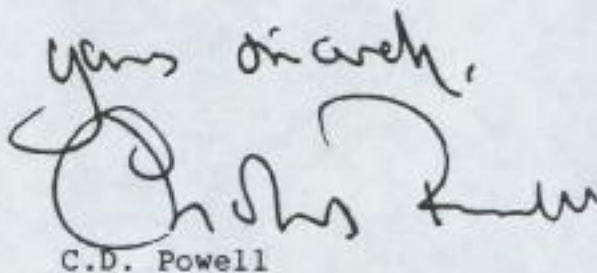 Yours sincerely,
Charles Powell
C.D. Powell